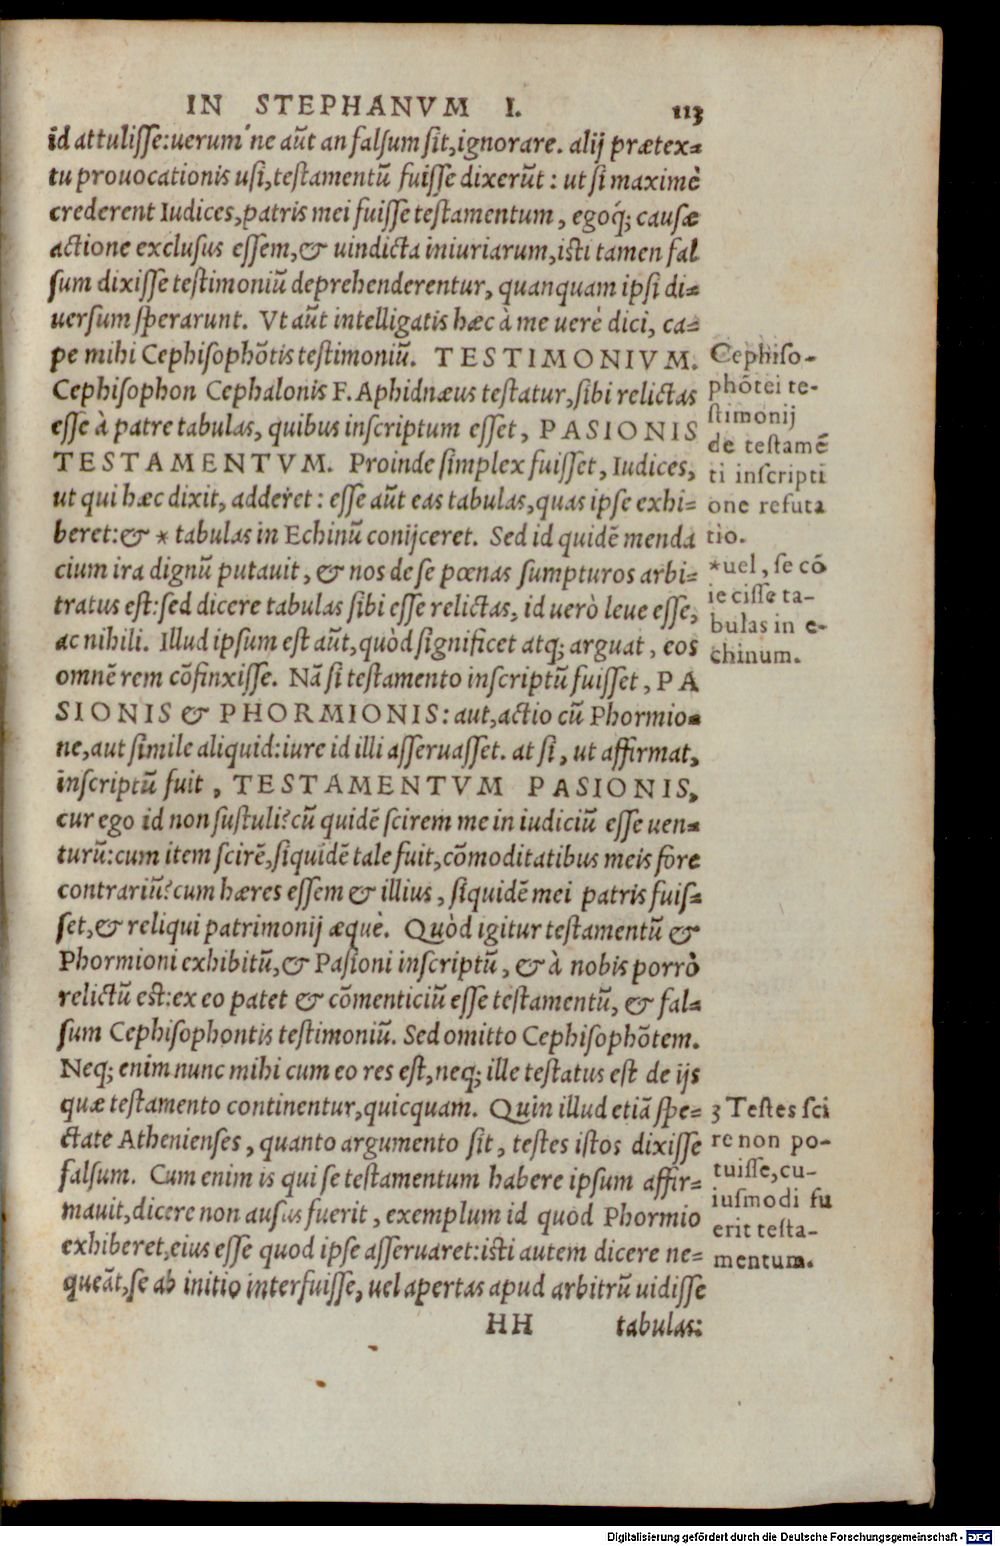 IN STEPHANVM I. 113
id attulisse: uerum ne aūt an falsum sit, ignorare. alij prætex-
tu prouocationis usi, testamentū fuisse dixerūt: ut si maximè
crederent Iudices, patris mei fuisse testamentum, egoq́; causæ
actione exclusus essem, & uindicta iniuriarum, isti tamen fal
sum dixisse testimoniū deprehenderentur, quanquam ipsi di-
uersum sperarunt. Vt aūt intelligatis hæc à me uerè dici, ca-
pe mihi Cephisophōtis testimoniū. TESTIMONIVM.
Cephisophon Cephalonis F. Aphidnæus testatur, sibi relictas
esse à patre tabulas, quibus inscriptum esset, PASIONIS
TESTAMENTVM. Proinde simplex fuisset, Iudices,
ut qui hæc dixit, adderet: esse aūt eas tabulas, quas ipse exhi-
beret: & * tabulas in Echinū conijceret. Sed id quidē menda
cium ira dignū putauit, & nos de se pœnas sumpturos arbi-
tratus est: sed dicere tabulas sibi esse relictas, id uerò leue esse,
ac nihili. Illud ipsum est aūt, quòd significet atq; arguat, eos
omnē rem cōfinxisse. Nā si testamento inscriptū fuisset, PA
SIONIS & PHORMIONIS: aut, actio cū Phormio-
ne, aut simile aliquid: iure id illi asseruasset. at si, ut affirmat,
inscriptū fuit, TESTAMENTVM PASIONIS,
cur ego id non sustuli? cū quidē scirem me in iudiciū esse uen-
turū: cum item scirē, siquidē tale fuit, cōmoditatibus meis fore
contrariū? cum hæres essem & illius, siquidē mei patris fuis-
set, & reliqui patrimonij æquè. Quòd igitur testamentū &
Phormioni exhibitū, & Pasioni inscriptū, & à nobis porrò
relictū est: ex eo patet & cōmenticiū esse testamentū, & fal-
sum Cephisophontis testimoniū. Sed omitto Cephisophōtem.
Neq; enim nunc mihi cum eo res est, neq; ille testatus est de ijs
quæ testamento continentur, quicquam. Quin illud etiā spe-
ctate Athenienses, quanto argumento sit, testes istos dixisse
falsum. Cum enim is qui se testamentum habere ipsum affir-
mauit, dicere non ausus fuerit, exemplum id quod Phormio
exhiberet, eius esse quod ipse asseruaret: isti autem dicere ne-
queāt, se ab initio interfuisse, uel apertas apud arbitrū uidisse
HH tabulas:
Cephiso-
phōtei te-
stimonij
de testamē
ti inscripti
one refuta
tio.
*uel, se cō
iecisse ta-
bulas in e-
chinum.
3 Testes sci
re non po-
tuisse, cu-
iusmodi fu
erit testa-
mentum.
Digitalisierung gefördert durch die Deutsche Forschungsgemeinschaft - DFG